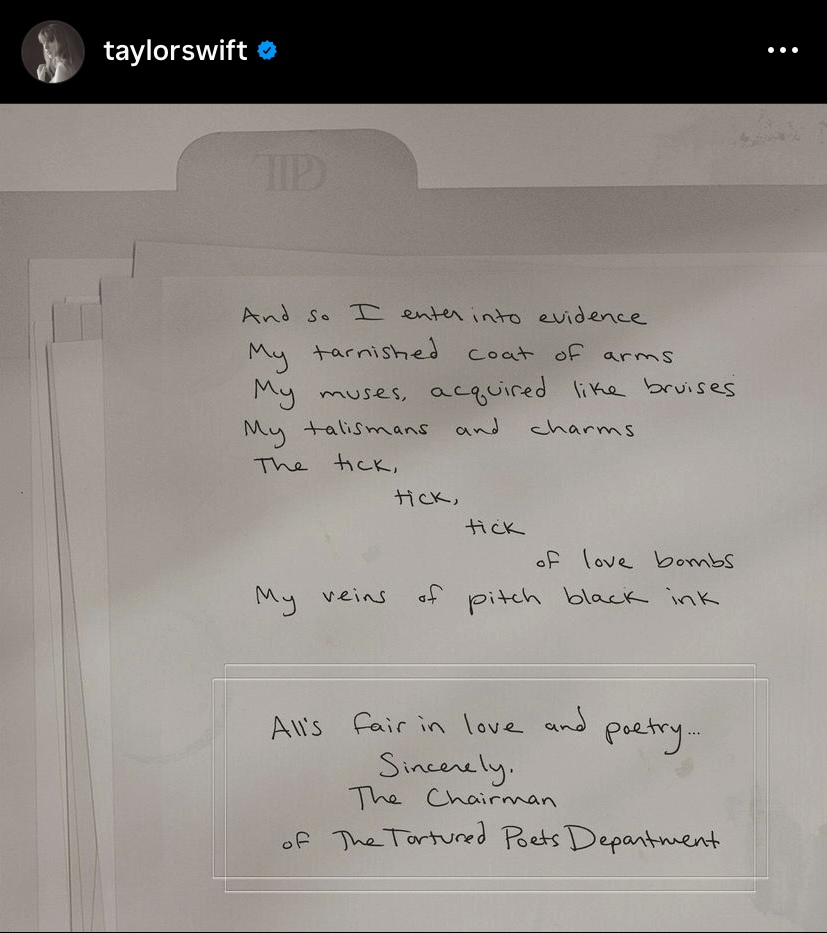 taylorswift
TTPD
And so I enter into evidence
My tarnished coat of arms
My muses, acquired like bruises
My talismans and charms
The tick,
tick,
tick
of love bombs
My veins of pitch black ink
All's fair in love and poetry...
Sincerely,
The Chairman
of The Tortured Poets Department